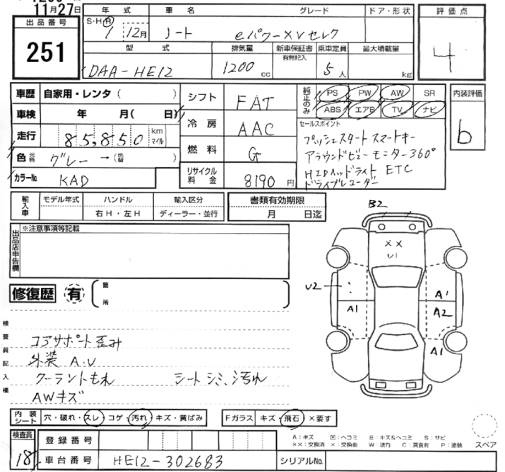 11月27日
出品番号
251
年式 車名 グレード ドア・形状 評価点
S・H・R 1年 12月 ノート eパワーXVセレク 4
型式 排気量 新車保証書 乗車定員 最大積載量
有無記入
DAA-HE12 1200 cc 5人 kg
車歴 自家用・レンタ( ) シフト FAT
車検 年 月( 日) 冷房 AAC
走行 85,850 km マイル 燃料 G
色 グレー → リサイクル料金 8190円
カラーNo KAD
純正のみ PS PW AW SR
ABS エアB TV ナビ
内装評価 b
セールスポイント
プッシュスタート スマートキー
アラウンドビューモニター360°
HIDヘッドライト ETC
ドライブレコーダー
輸入車 モデル年式 ハンドル 輸入区分 書類有効期限
右H・左H ディーラー・並行 月 日迄
※注意事項等記載
修復歴 有 箇所
B2
XX
U1
U2
A1 A1
A2
A1
コアサポート歪み
外装 A.U
クーラントもれ シートシミ、汚れ
AWキズ
内装シート 穴・破れ・スレ コゲ・汚れ・キズ・黄ばみ Fガラス キズ・飛石・×要す
検査員 18 登録番号
車台番号 HE12-302683 シリアルNo.
スペア